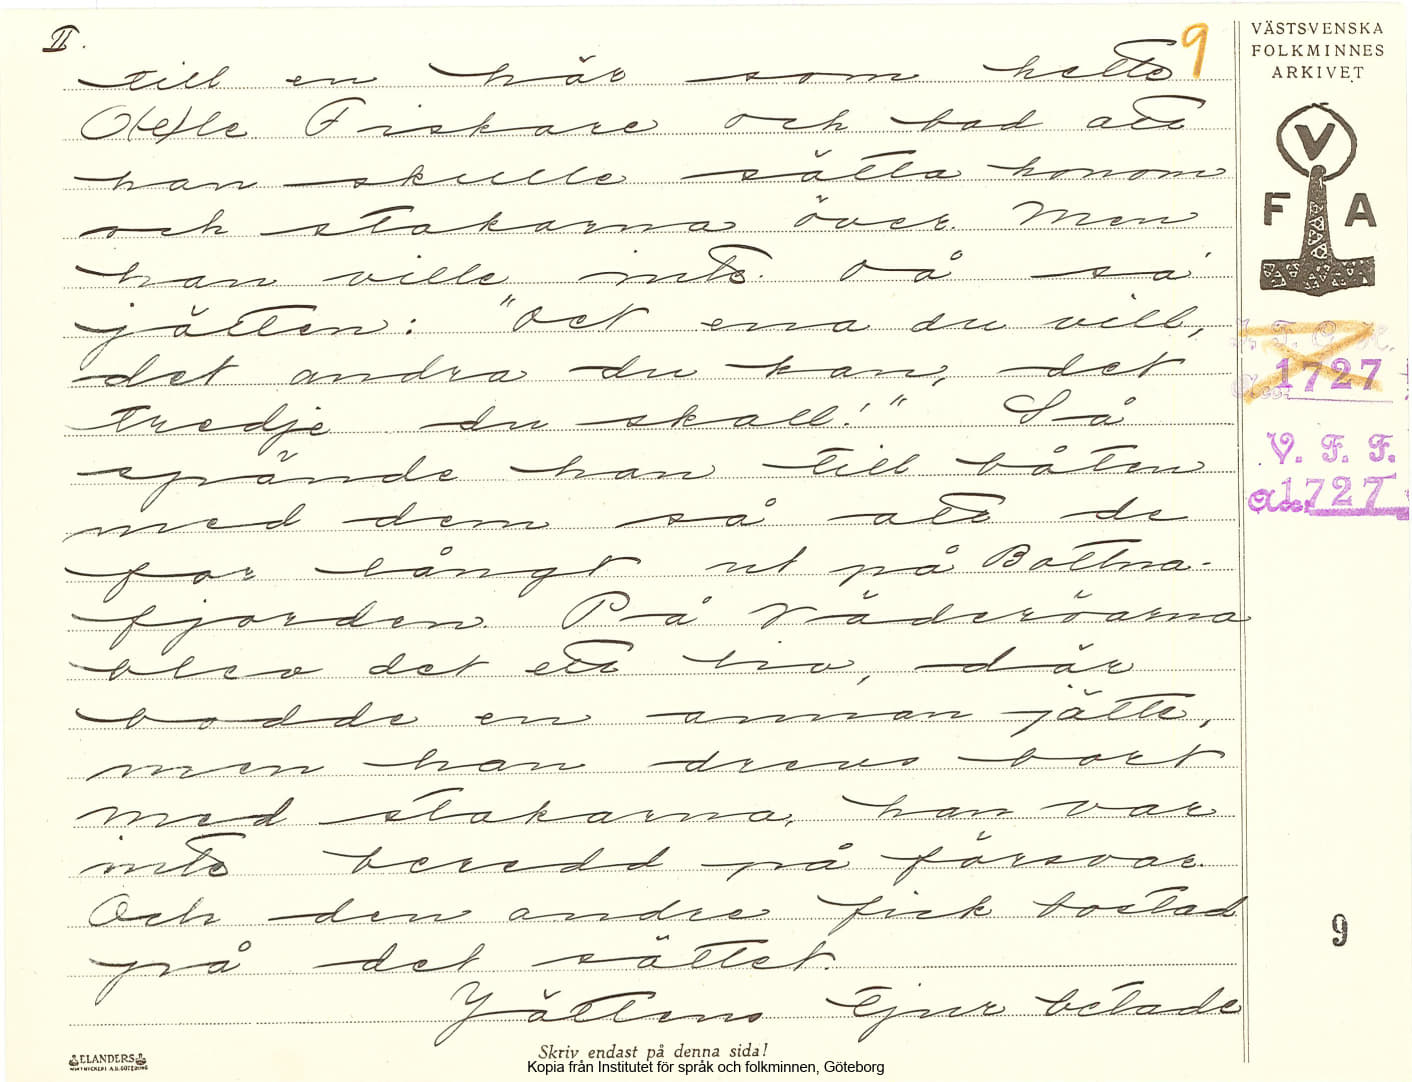 II.
9
till en här som hette
O(e)le Fiskare och bad att
han skulle sätta honom
och stakarna över. Men
han ville inte. Då sa
jätten: "Det ena du vill,
det andra du kan, det
tredje du skall!" Så
spände han till båten
med dem så att de
for långt ut på Bottna-
fjorden. På Väderöarna
blev det ett liv, där
bodde en annan jätte,
men han drevs bort
med stakarna, han var
inte beredd på försvar.
Och den andre fick bostad
på det sättet.
Jättens tjur betade
VÄSTSVENSKA
FOLKMINNES
ARKIVET
V
F A
1727
V. F. F.
1727
9
ELANDERS
Skriv endast på denna sida!
Kopia från Institutet för språk och folkminnen, Göteborg